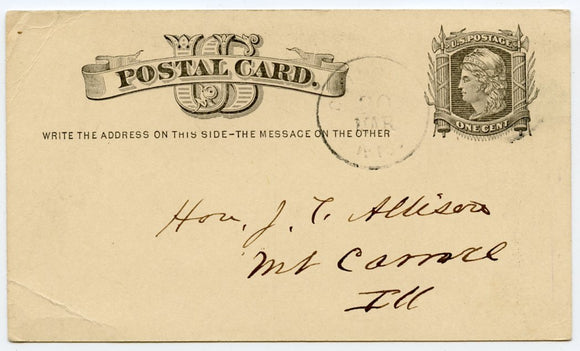 US
POSTAL CARD.
U.S. POSTAGE
ONE CENT
WRITE THE ADDRESS ON THIS SIDE-THE MESSAGE ON THE OTHER
20
MAR
Hon. J. T. Allison
Mt Carroll
Ill